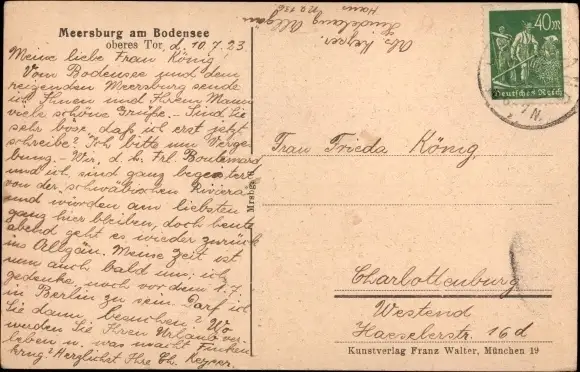 Meersburg am Bodensee
oberes Tor, d. 10.7.23.
Meine liebe Frau König!
Vom Bodensee und dem
reizenden Meersburg sende
ich Ihnen und Ihrem Mann
viele schöne Grüße. - Sind Sie
sehr böse, daß ich erst jetzt
schreibe? Ich bitte um Verge-
bung. - Wir, d. h. Frl.
und ich, sind ganz begeistert
von der schwäbischen Riviera
und würden am liebsten
ganz hier bleiben, doch heute
abend geht es wieder zurück
ins Allgäu. Meine Zeit ist
nun auch bald um; ich
gedenke noch vor dem 1.
in Berlin zu sein. Darf ich
Sie dann besuchen? Wo
werden Sie Ihren Urlaub ver-
leben u. was macht
Herzlichst Ihre Ch. Keyser.
Ch. Keyser.
Allgäu
Haus
40M
Deutsches Reich
Mrsbg
Frau Frieda König,
Charlottenburg
Westend
Haeselerstr. 16d
Kunstverlag Franz Walter, München 19